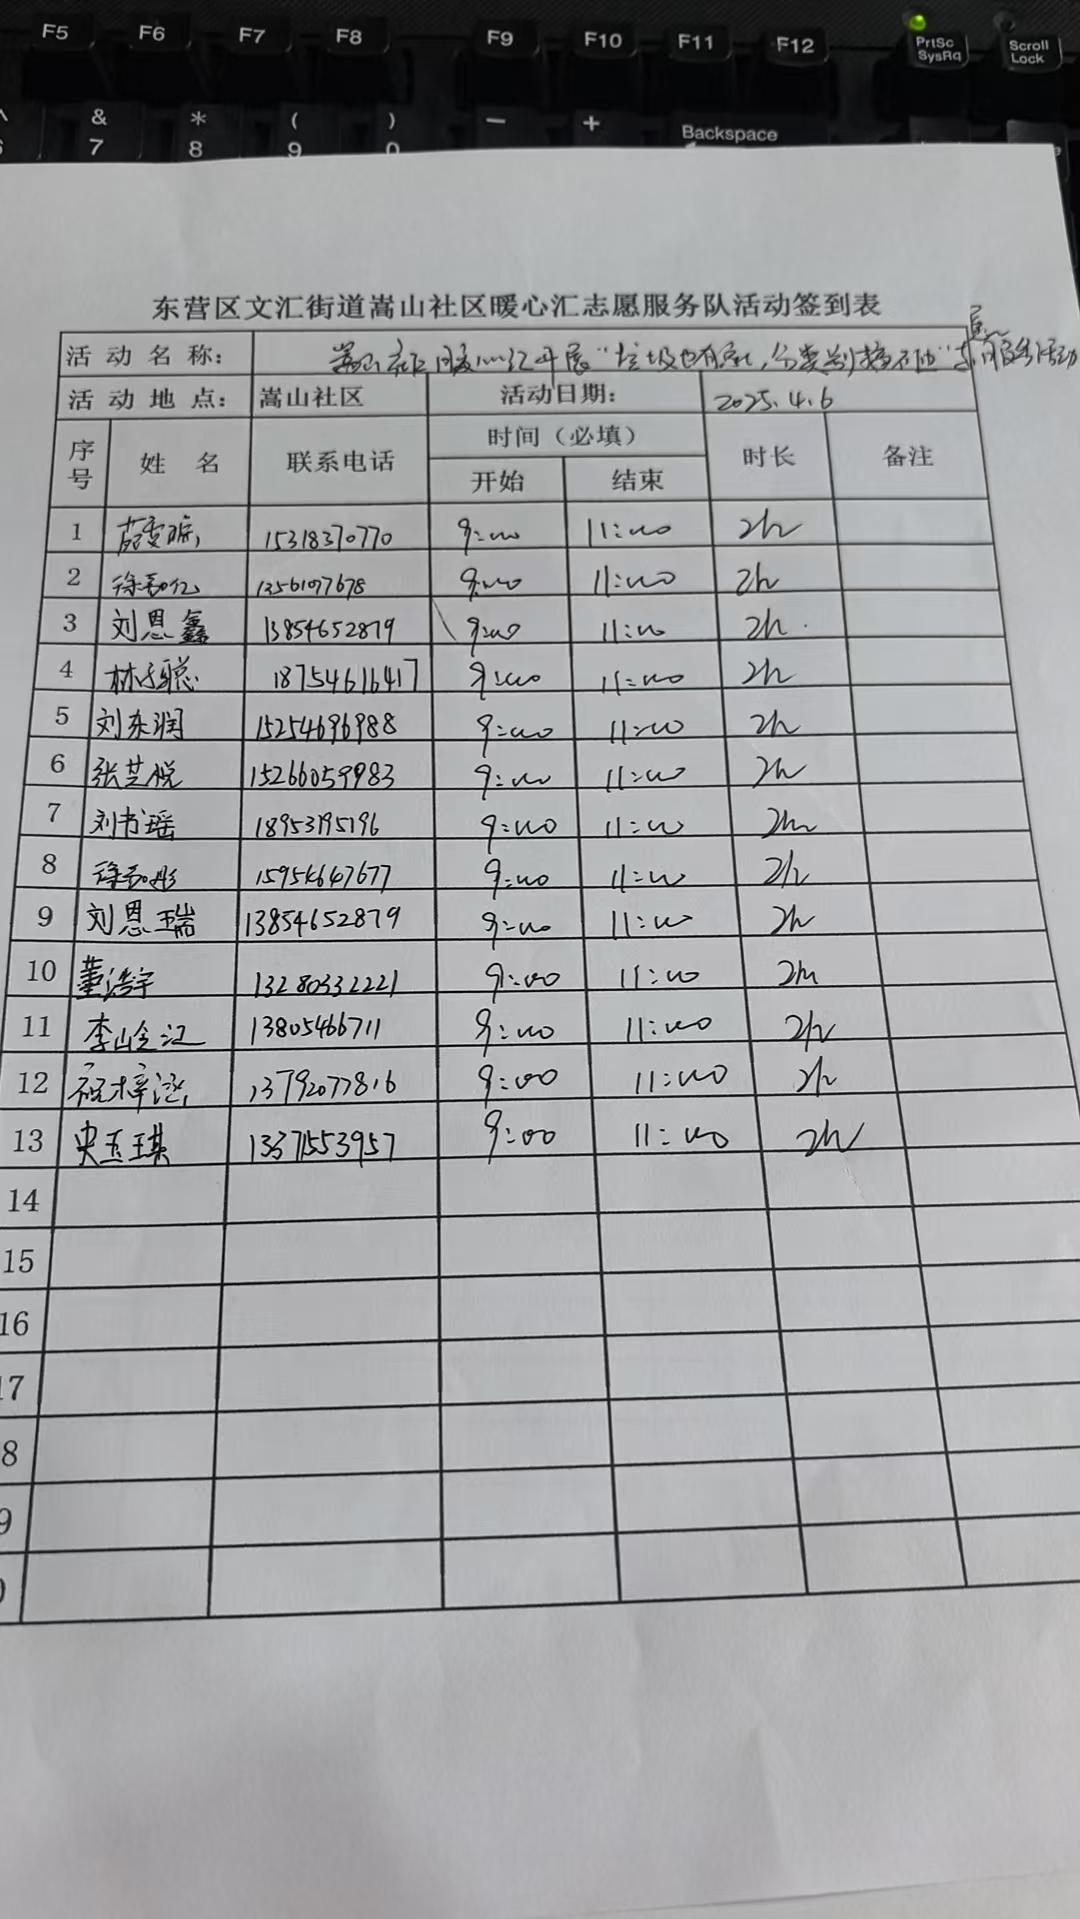 F5 F6 F7 F8 F9 F10 F11 F12 PrtSc SysRq Scroll Lock
& 7 * 8 ( 9 ) 0 - + Backspace
东营区文汇街道嵩山社区暖心汇志愿服务队活动签到表
活动名称： 嵩山社区暖心汇开展“垃圾也有家，分类别拉下它”志愿服务活动
活动地点： 嵩山社区 活动日期： 2025.4.6
序号 姓名 联系电话 时间（必填） 时长 备注
开始 结束
1 15318370770 9:00 11:00 2h
2 1356197678 9:00 11:00 2h
3 刘恩鑫 13854652879 9:00 11:00 2h
4 林子聪 18754616417 9:00 11:00 2h
5 刘东润 15254696988 9:00 11:00 2h
6 张芝悦 15266059983 9:00 11:00 2h
7 刘书瑶 18953195196 9:00 11:00 2h
8 15954647677 9:00 11:00 2h
9 刘恩瑞 13854652879 9:00 11:00 2h
10 董浩宇 13280332221 9:00 11:00 2h
11 13805466711 9:00 11:00 2h
12 祝梓涵 13792077816 9:00 11:00 2h
13 史玉琪 13371553957 9:00 11:00 2h
14
15
16
17
8
9